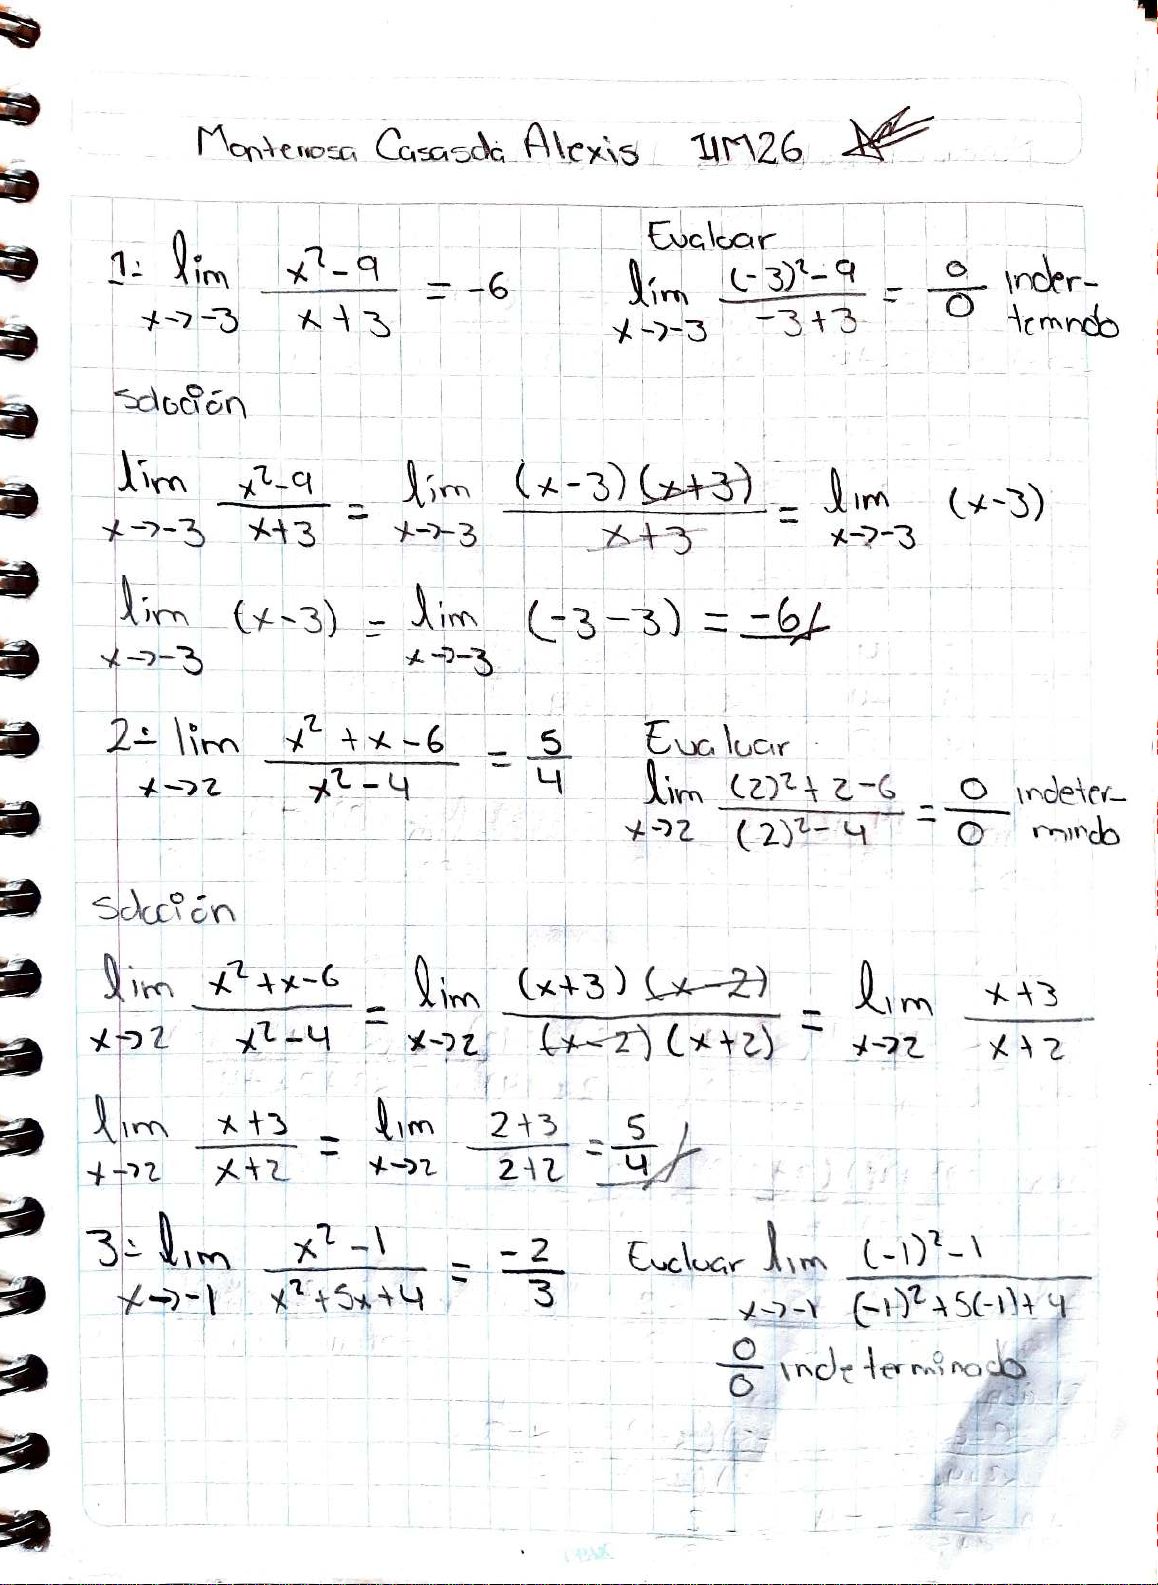 Monterrosa Casasda Alexis 1IM26
1.- lim x→-3 (x²-9)/(x+3) = -6
Evaluar
lim x→-3 ((-3)²-9)/(-3+3) = 0/0 inder-
temndo
solución
lim x→-3 (x²-9)/(x+3) = lim x→-3 ((x-3)(x+3))/(x+3) = lim x→-3 (x-3)
lim x→-3 (x-3) = lim x→-3 (-3-3) = -6
2.- lim x→2 (x²+x-6)/(x²-4) = 5/4
Evaluar
lim x→2 ((2)²+2-6)/((2)²-4) = 0/0 indeter-
mindo
Solución
lim x→2 (x²+x-6)/(x²-4) = lim x→2 ((x+3)(x-2))/((x-2)(x+2)) = lim x→2 (x+3)/(x+2)
lim x→2 (x+3)/(x+2) = lim x→2 (2+3)/(2+2) = 5/4
3.- lim x→-1 (x²-1)/(x²+5x+4) = -2/3
Evaluar lim x→-1 ((-1)²-1)/((-1)²+5(-1)+4)
0/0 indeterminado